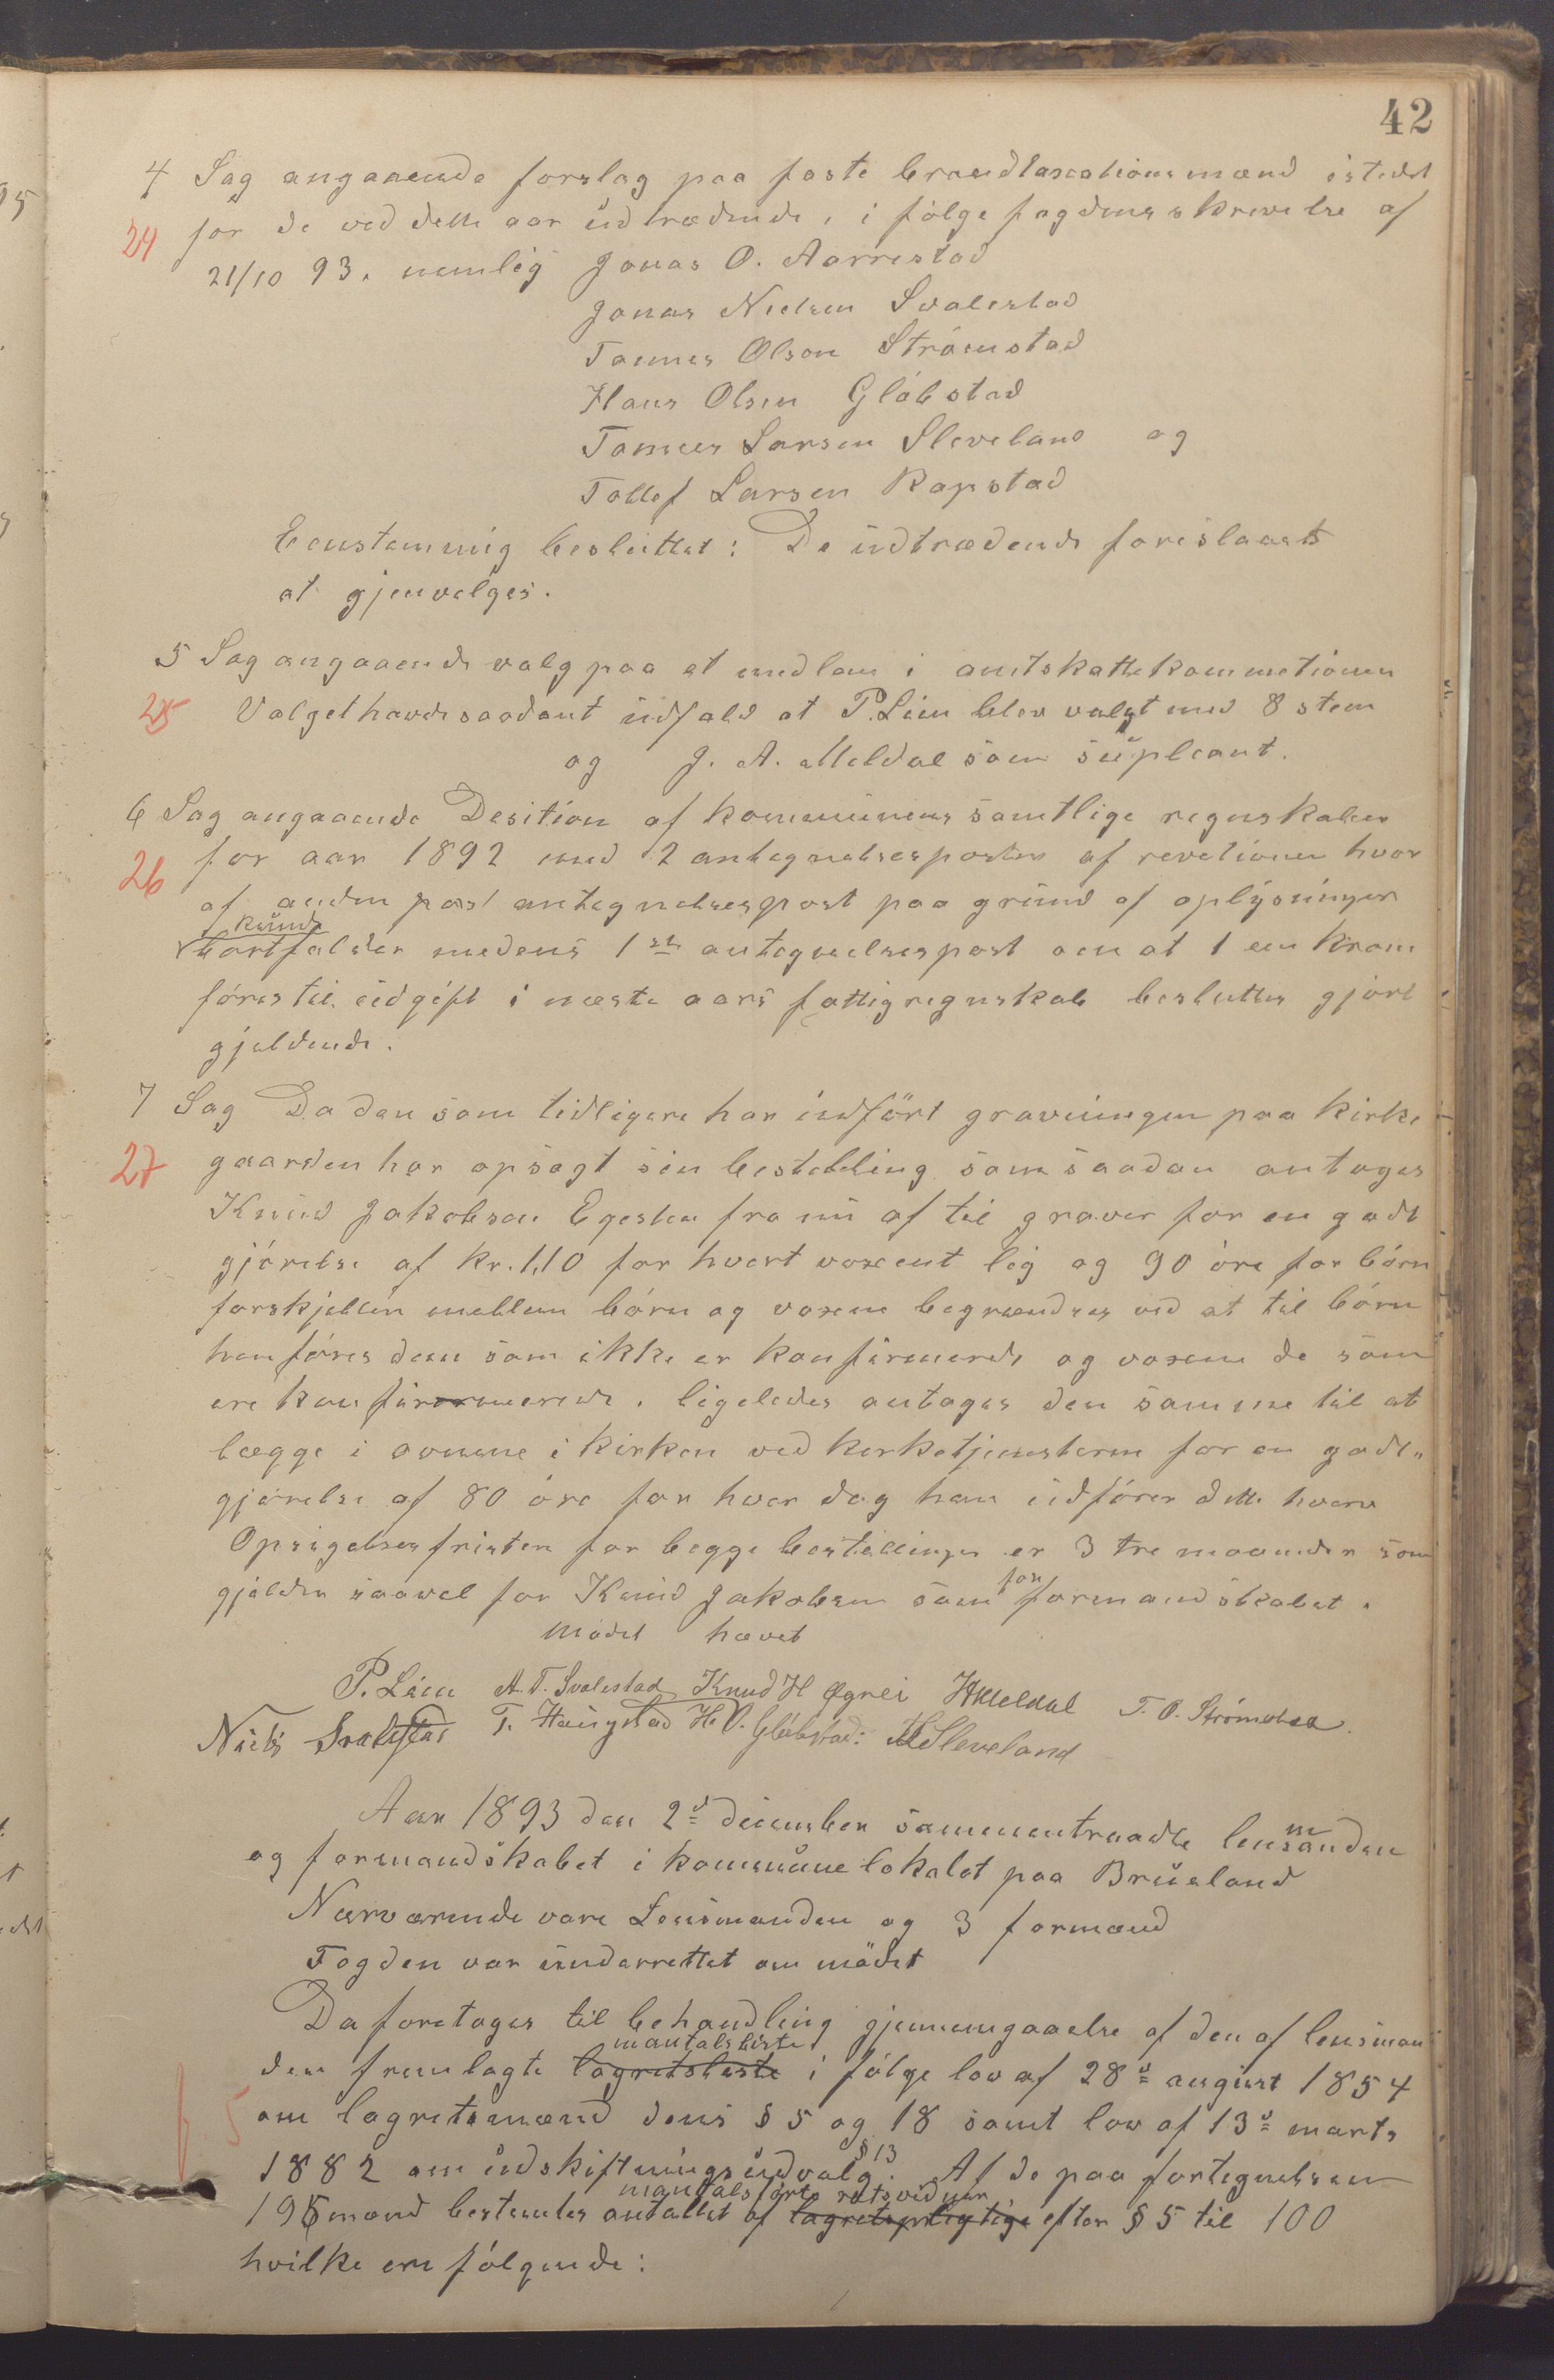 42
4 Sag angaaende forslag paa faste brandtaxationsmænd istedet
24 for de ved dette aar udtrædende, i følge fogdens skrivelse af
21/10 93. nemlig Jonas O. Aarrestad
Jonas Nielsen Svalestad
Tønnes Olson Strømstad
Hans Olsen Gløbstad
Tønnes Larsen Sleveland og
Tollef Larsen Rapstad
Eenstemmig besluttet: De udtrædende foreslaaets
at gjenvælges.
5 Sag angaaende valg paa et medlem i amtskattekommetionen
25 Valget havde saadant udfald at P. Lien blev valgt med 8 stem
og J. A. Meldal som supleant.
6 Sag angaaende Desition af kommunens samtlige regnskaber
26 for aar 1892 med 2 antegnelsesposter af revetionen hvor
af anden post antegnelsespost paa grund af oplysninger
kunde
bortfalder medens 1ste antegnelsespost om at 1 een krone
føres til udgift i næste aars fattigregnskab besluttes gjort
gjeldende.
7 Sag Da den som tidligere har indført gravningen paa kirke
27 gaarden har opsagt sin bestilling som saadan antages
Knud Jakobsen Egeslien fra nu af til graver for en godt
gjørelse af kr. 1,10 for hvert voxent lig og 90 øre for børn
forskjellen mellem børn og voxene begrændses ved at til børn
henføres dem som ikke er konfirmerede og voxene de som
ere konfirormerede. ligeledes antages den samme til at
lægge i ovnene i kirken ved kerketjenesterne for en godt„
gjørelse af 80 øre for hver dag han udfører dette hverv
Opsigelsesfristen for begge bestillinger er 3 tre maaneder som
for
gjælder saavel for Knud Jakobsen som formandskabet.
mødet hævet
P. Lien A. T. Svalestad Knud H Øgrei JAMeldal T. O. Strømstad.
Niels Svalestad T. Haugstad H. O. Gløbstad: TLSleveland
Aar 1893 den 2d desember sammentraadte lensmanden
og formandskabet i kommune lokalet paa Brusland
Nærværende vare Lensmanden og 3 formænd
Fogden var underrettet om mødet
Da foretages til behandling gjennemgaaelse af den af lensman
mantalsliste
den fremlagte lagretsliste i følge lov af 28d august 1854
5 om lagretsmænd dens § 5 og 18 samt lov af 13d marts
§ 13
1882 om udskiftningsudvalg. Af de paa fortegnelsen
mantalsførte retsvidner
195 mænd bestemtes antallet af lagretspligtige efter § 5 til 100
hvilke ere følgende: